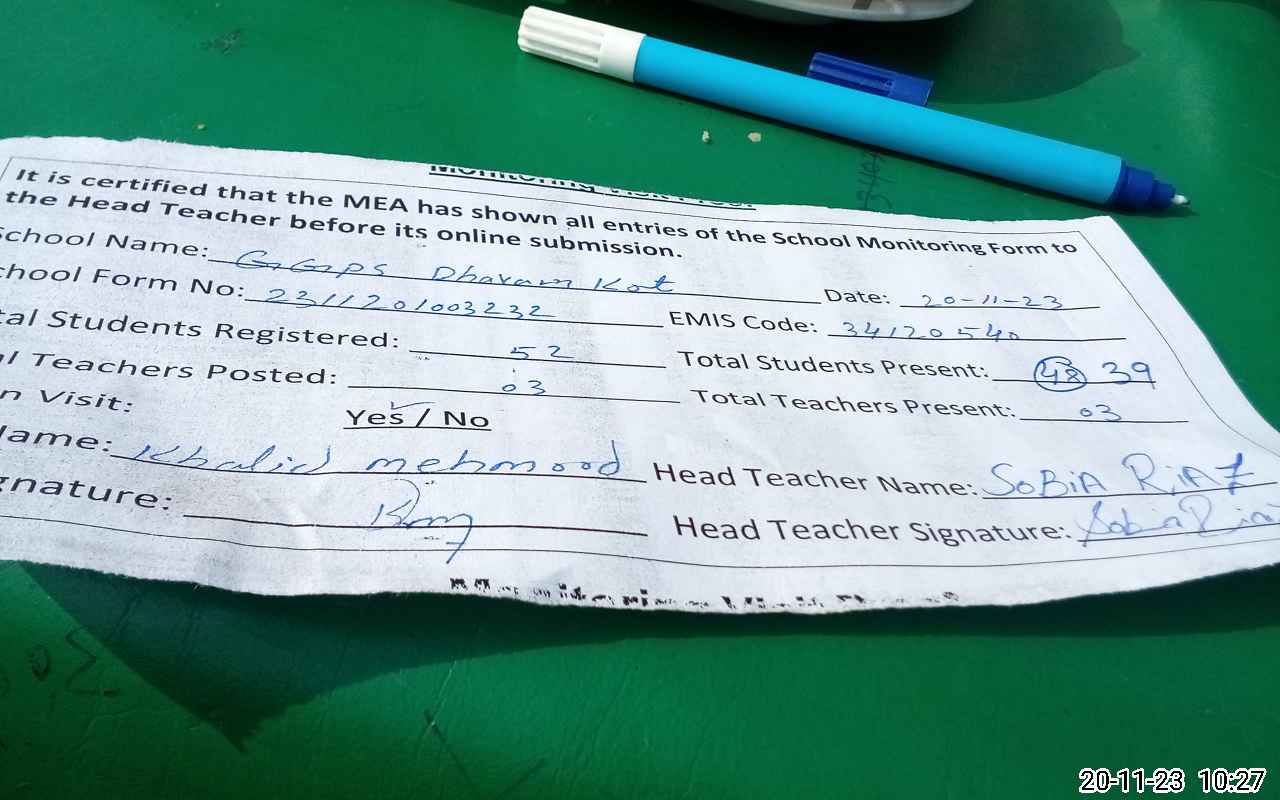 Monitoring Visit Proof
It is certified that the MEA has shown all entries of the School Monitoring Form to
the Head Teacher before its online submission.
School Name: GGPS Dharam Kot Date: 20-11-23
chool Form No: 2311201003232 EMIS Code: 34120540
tal Students Registered: 52 Total Students Present: 48 39
l Teachers Posted: 03 Total Teachers Present: 03
n Visit: Yes / No
Name: Khalid mehmood Head Teacher Name: SOBIA RIAZ
gnature: Head Teacher Signature: Sobia Riaz
20-11-23 10:27